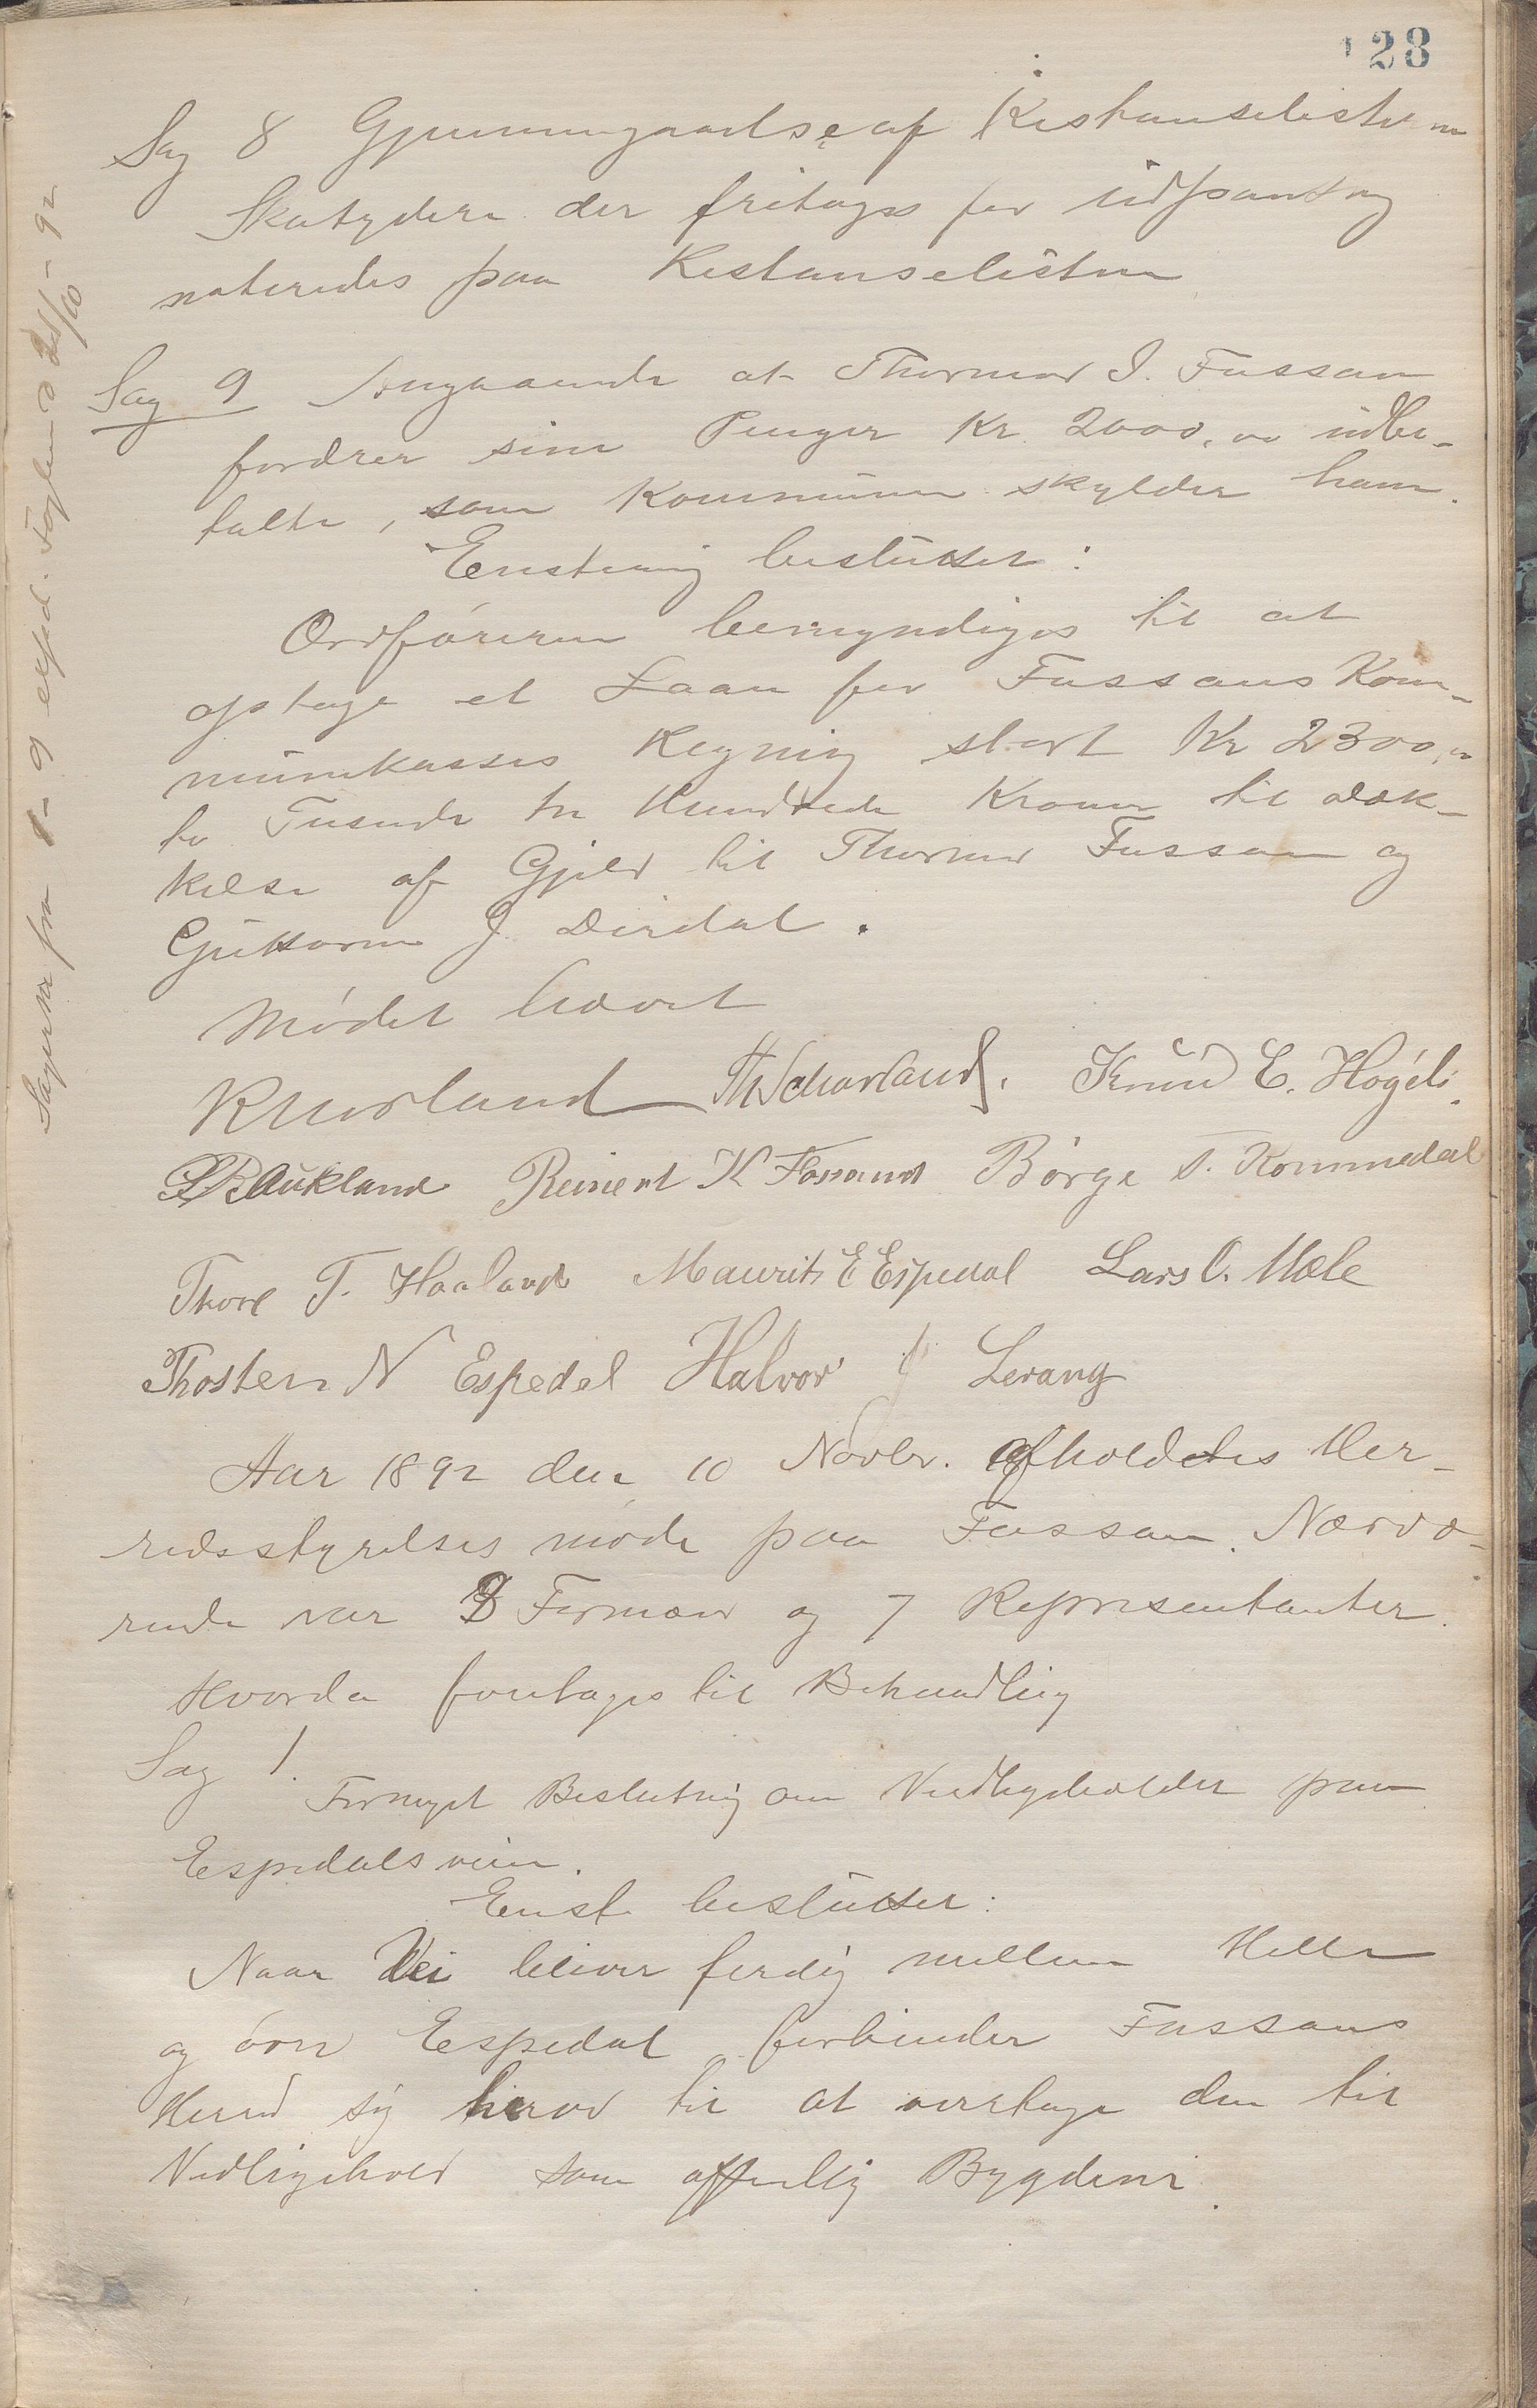 128
Sag 8 Gjennemgaaelse af Restanselisten
Skatydere der fritages for Udpantning
noteredes paa Restanselisten
Sag 9 Angaaende at Thormod I. Fossan
fordrer sine Penger Kr. 2000,00 udbe-
talte, som Kommunen skylder ham.
Enstemig besluttet:
Ordføreren bemyndiges til at
optage et Laan for Fossans Kom-
munekasses Regning stort Kr 2300,00
to Tusende tre Hundrede Kroner til Dæk-
kelse af Gjæld til Thormod Fossan og
Guttorm J. Dirdal.
Mødet hævet
Th Schavland. Knud E. Høgeli.
Aukland Reinert K Fossand Børge T. Kommedal
Thore T. Haaland Maurits E Espedal Lars O. Mæle
Thosten N Espedal Halvor J Levang
Aar 1892 den 10 Novbr. afholdtes Her-
redsstyrelses møde paa Fossan. Nærvæ-
rende var 3 Formænd og 7 Repræsentanter.
Hvorda foretages til Behandling
Sag 1.
Fornyet Beslutning om Vedligeholdet paa
Espedalsveien.
Enst. besluttet:
Naar Vei bliver ferdig mellem Helle
og øvre Espedal forbinder Fossans
Herred sig herved til at overtage den til
Vedligehold som offentlig Bygdevei.
Sagerne fra 1-9 exped. Fogden d 28/10-92